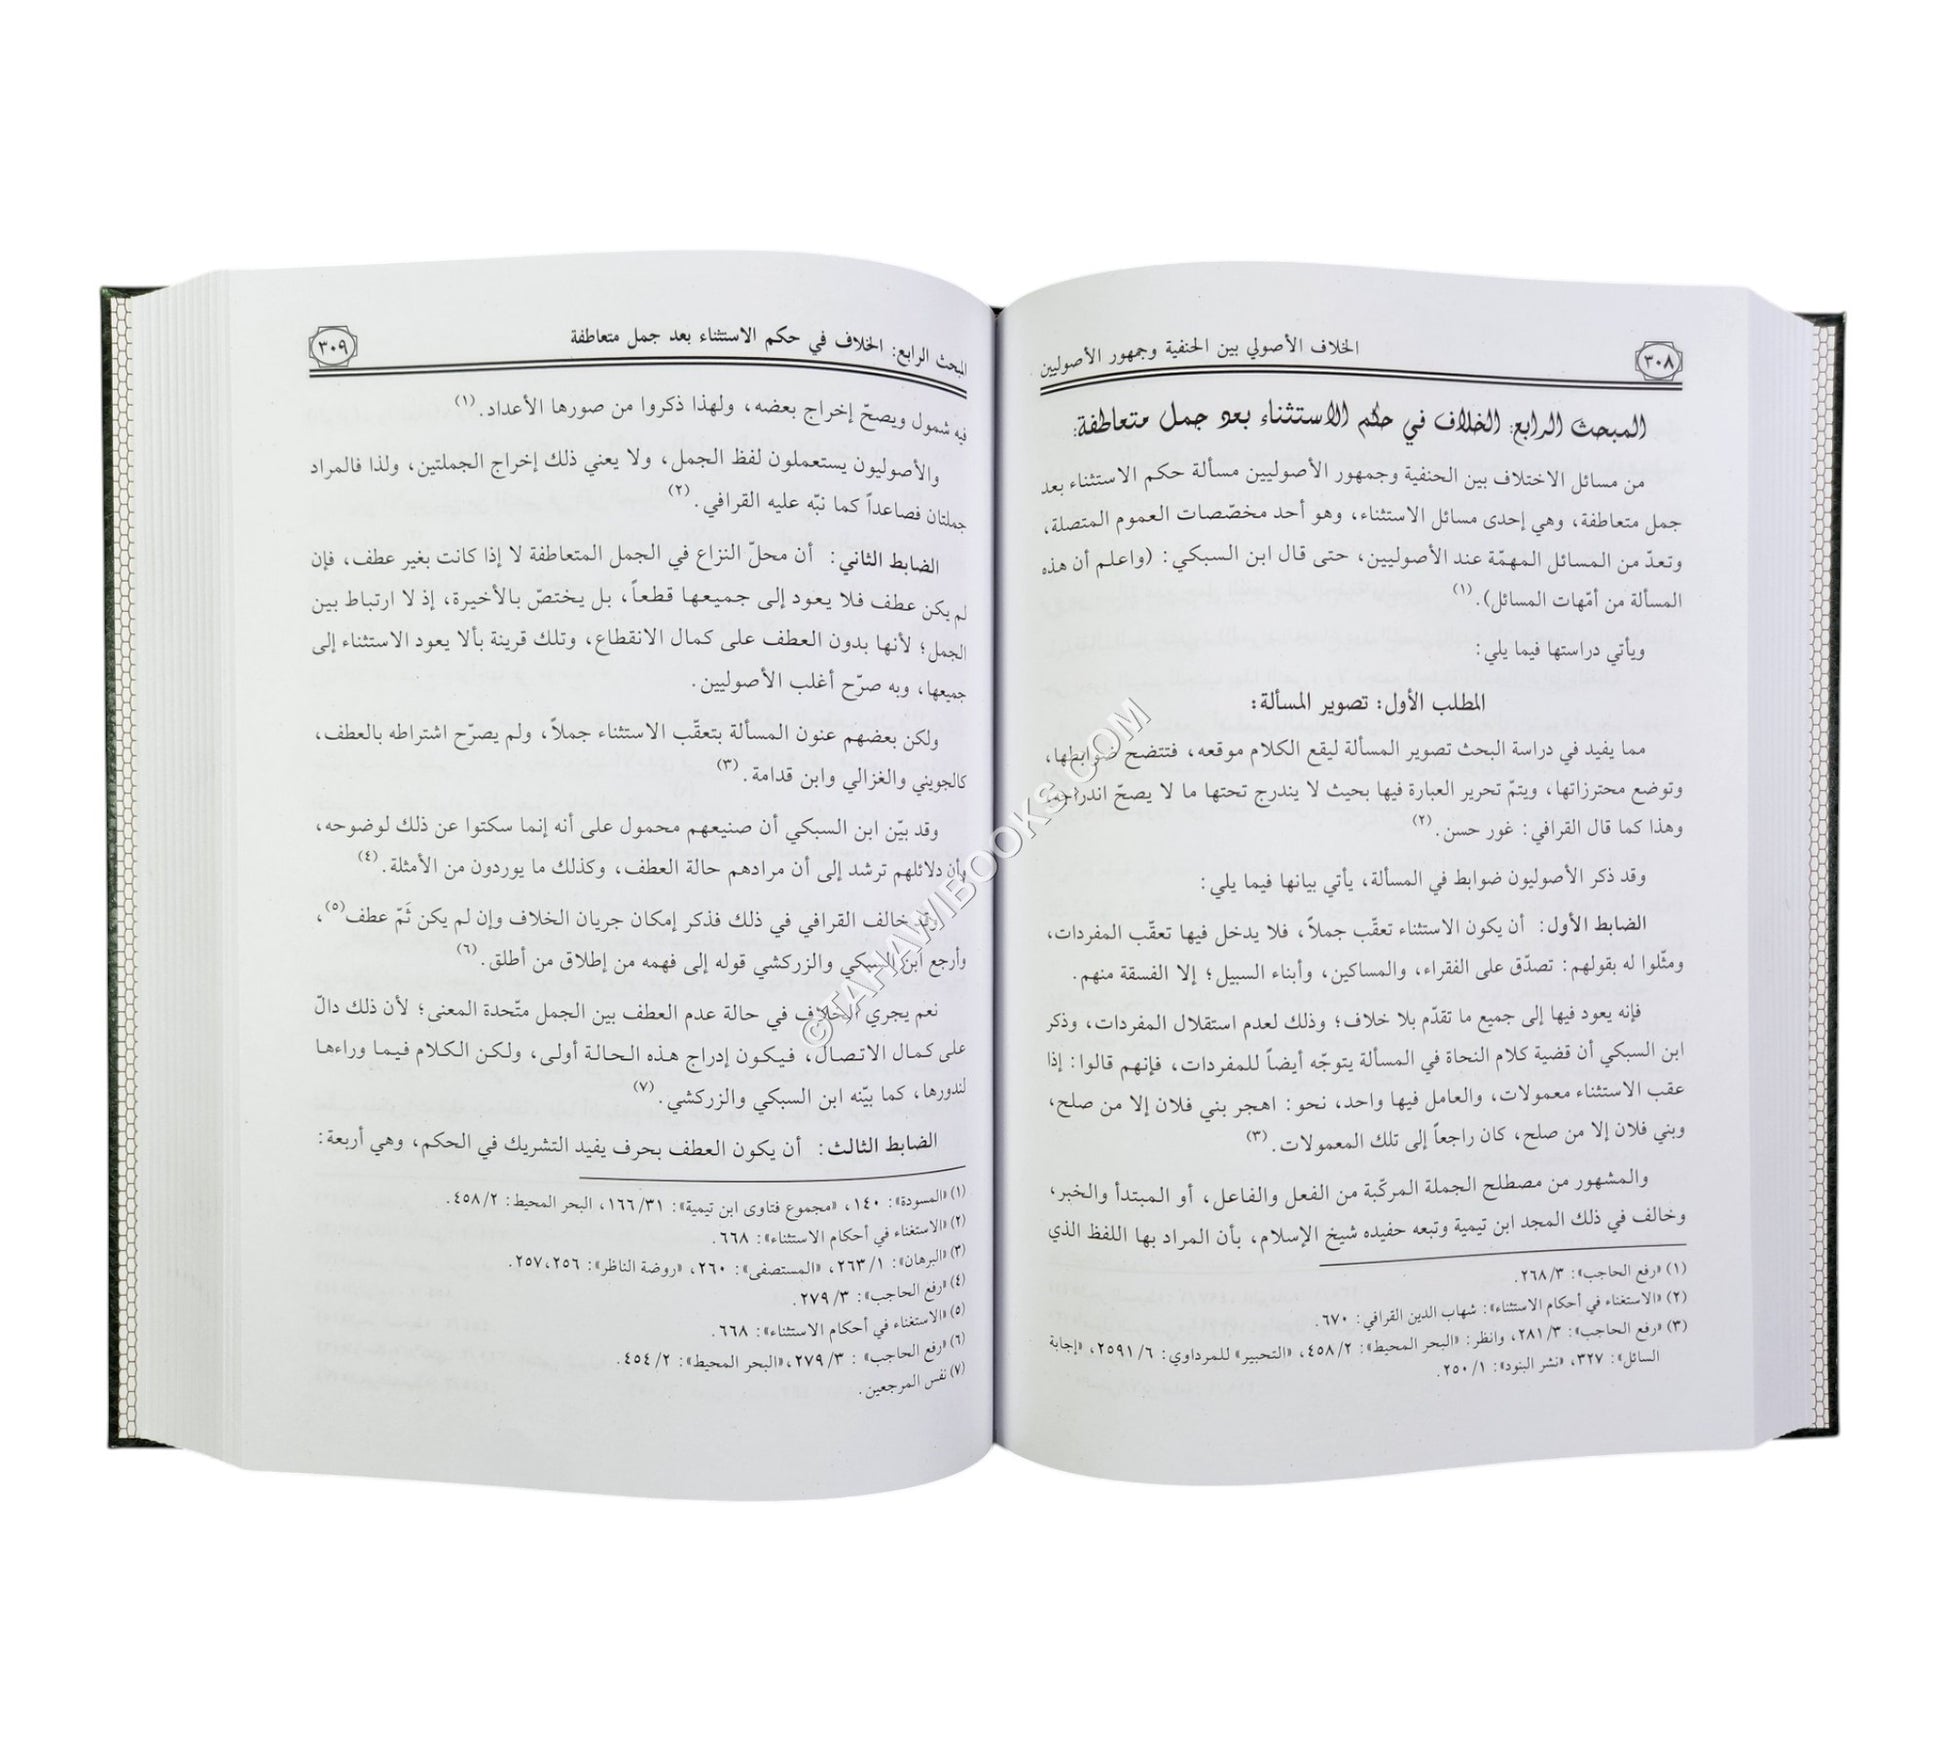 ٣٠٨
الخلاف الأصولي بين الحنفية وجمهور الأصوليين
المبحث الرابع: الخلاف في حكم الاستثناء بعد جمل متعاطفة:
من مسائل الاختلاف بين الحنفية وجمهور الأصوليين مسألة حكم الاستثناء بعد
جمل متعاطفة، وهي إحدى مسائل الاستثناء، وهو أحد مخصّصات العموم المتصلة،
وتعدّ من المسائل المهمّة عند الأصوليين، حتى قال ابن السبكي: (واعلم أن هذه
المسألة من أمّهات المسائل).(١)
ويأتي دراستها فيما يلي:
المطلب الأول: تصوير المسألة:
مما يفيد في دراسة البحث تصوير المسألة ليقع الكلام موقعه، فتتضح ضوابطها،
وتوضع محترزاتها، ويتمّ تحرير العبارة فيها بحيث لا يندرج تحتها ما لا يصحّ اندراجه،
وهذا كما قال القرافي: غور حسن.(٢)
وقد ذكر الأصوليون ضوابط في المسألة، يأتي بيانها فيما يلي:
الضابط الأول: أن يكون الاستثناء تعقّب جملاً، فلا يدخل فيها تعقّب المفردات،
ومثّلوا له بقولهم: تصدّق على الفقراء، والمساكين، وأبناء السبيل؛ إلا الفسقة منهم.
فإنه يعود فيها إلى جميع ما تقدّم بلا خلاف؛ وذلك لعدم استقلال المفردات، وذكر
ابن السبكي أن قضية كلام النحاة في المسألة يتوجّه أيضاً للمفردات، فإنهم قالوا: إذا
عقب الاستثناء معمولات، والعامل فيها واحد، نحو: اهجر بني فلان إلا من صلح،
وبني فلان إلا من صلح، كان راجعاً إلى تلك المعمولات.(٣)
والمشهور من مصطلح الجملة المركّبة من الفعل والفاعل، أو المبتدأ والخبر،
وخالف في ذلك المجد ابن تيمية وتبعه حفيده شيخ الإسلام، بأن المراد بها اللفظ الذي
(١) «رفع الحاجب»: ٢٦٨/٣.
(٢) «الاستغناء في أحكام الاستثناء»: شهاب الدين القرافي: ٦٧٠.
(٣) «رفع الحاجب»: ٢٨١/٣، وانظر: «البحر المحيط»: ٤٥٨/٢، «التحبير» للمرداوي: ٢٥٩١/٦، «إجابة
السائل»: ٣٢٧، «نشر البنود»: ٢٥٠/١.
المبحث الرابع: الخلاف في حكم الاستثناء بعد جمل متعاطفة
٣٠٩
فيه شمول ويصحّ إخراج بعضه، ولهذا ذكروا من صورها الأعداد.(١)
والأصوليون يستعملون لفظ الجمل، ولا يعني ذلك إخراج الجملتين، ولذا فالمراد
جملتان فصاعداً كما نبّه عليه القرافي.(٢)
الضابط الثاني: أن محلّ النزاع في الجمل المتعاطفة لا إذا كانت بغير عطف، فإن
لم يكن عطف فلا يعود إلى جميعها قطعاً، بل يختصّ بالأخيرة، إذ لا ارتباط بين
الجمل؛ لأنها بدون العطف على كمال الانقطاع، وتلك قرينة بألا يعود الاستثناء إلى
جميعها، وبه صرّح أغلب الأصوليين.
ولكن بعضهم عنون المسألة بتعقّب الاستثناء جملاً، ولم يصرّح اشتراطه بالعطف،
كالجويني والغزالي وابن قدامة.(٣)
وقد بيّن ابن السبكي أن صنيعهم محمول على أنه إنما سكتوا عن ذلك لوضوحه،
وأن دلائلهم ترشد إلى أن مرادهم حالة العطف، وكذلك ما يوردون من الأمثلة.(٤)
وقد خالف القرافي في ذلك فذكر إمكان جريان الخلاف وإن لم يكن ثَمّ عطف(٥)،
وأرجع ابن السبكي والزركشي قوله إلى فهمه من إطلاق من أطلق.(٦)
نعم يجري الخلاف في حالة عدم العطف بين الجمل متّحدة المعنى؛ لأن ذلك دالّ
على كمال الاتصال، فيكون إدراج هذه الحالة أولى، ولكن الكلام فيما وراءها
لندورها، كما بيّنه ابن السبكي والزركشي.(٧)
الضابط الثالث: أن يكون العطف بحرف يفيد التشريك في الحكم، وهي أربعة:
(١) «المسودة»: ١٤٠، «مجموع فتاوى ابن تيمية»: ١٦٦/٣١، البحر المحيط: ٤٥٨/٢.
(٢) «الاستغناء في أحكام الاستثناء»: ٦٦٨.
(٣) «البرهان»: ٢٦٣/١، «المستصفى»: ٢٦٠، «روضة الناظر»: ٢٥٦، ٢٥٧.
(٤) «رفع الحاجب»: ٢٧٩/٣.
(٥) «الاستغناء في أحكام الاستثناء»: ٦٦٨.
(٦) «رفع الحاجب» : ٢٧٩/٣، «البحر المحيط»: ٤٥٤/٢.
(٧) نفس المرجعين.
©TAHAWIBOOKS.COM